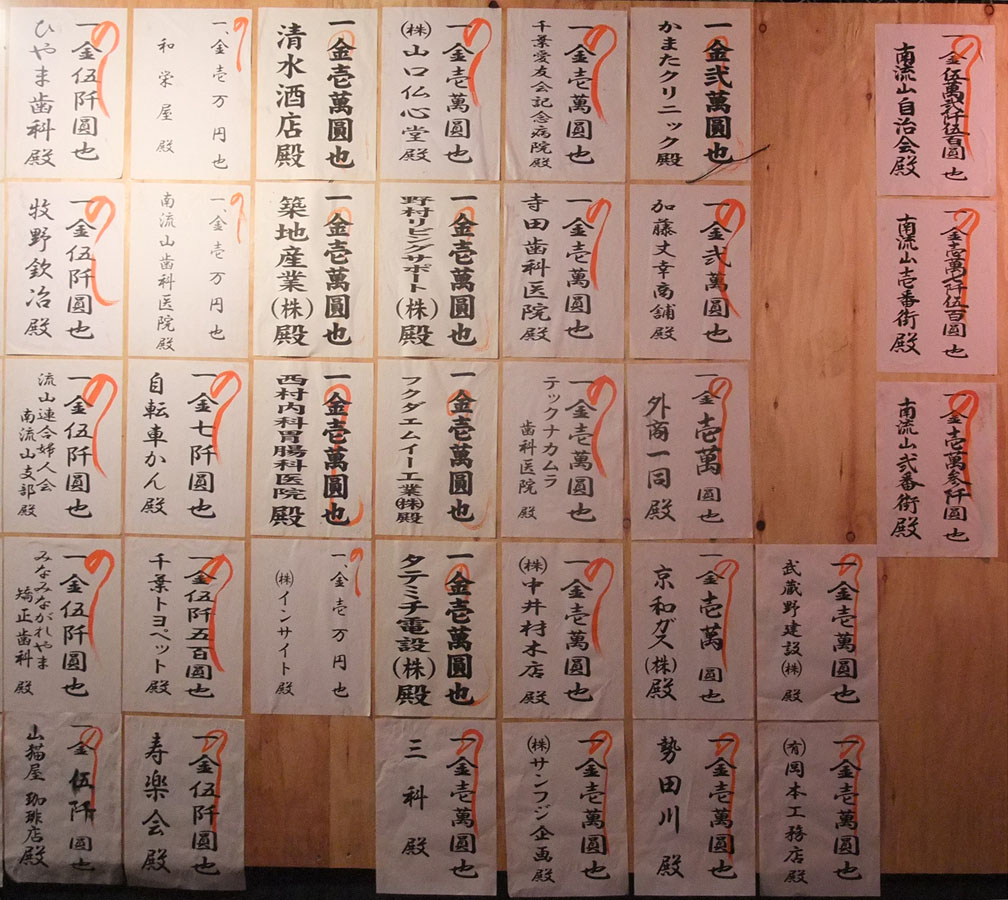 一金伍萬弐仟伍百圓也
南流山自治会殿
一金壱萬七阡伍百圓也
南流山壱番街殿
一金壱萬参阡圓也
南流山弐番街殿
一金壱萬圓也
武蔵野建設㈱殿
一金壱萬圓也
㈲岡本工務店殿
一金弐萬圓也
かまたクリニック殿
一金弐萬圓也
加藤丈幸商舗殿
一金壱萬圓也
外商一同殿
一金壱萬圓也
京和ガス(株)殿
一金壱萬圓也
勢田川殿
一金壱萬圓也
千葉愛友会記念病院殿
一金壱萬圓也
寺田歯科医院殿
一金壱萬圓也
テックナカムラ
歯科医院殿
一金壱萬圓也
㈱中井材木店殿
一金壱萬圓也
㈱サンフジ企画殿
一金壱萬圓也
㈱山口仏心堂殿
一金壱萬圓也
野村リビングサポート(株)殿
一金壱萬圓也
フクダエムイー工業㈱殿
一金壱萬圓也
タテミチ電設(株)殿
一金壱萬圓也
三科殿
一金壱萬圓也
清水酒店殿
一金壱萬圓也
築地産業(株)殿
一金壱萬圓也
西村内科胃腸科医院殿
一、金壱万円也
㈱インサイト殿
一、金壱万円也
和栄屋殿
一、金壱万円也
南流山歯科医院殿
一金七阡圓也
自転車かん殿
一金伍阡五百圓也
千葉トヨペット殿
一金伍阡圓也
寿楽会殿
一金伍阡圓也
ひやま歯科殿
一金伍阡圓也
牧野欽冶殿
一金伍阡圓也
流山連合婦人会
南流山支部殿
一金伍阡圓也
みなみながれやま
矯正歯科殿
一金伍阡圓也
山猫屋珈琲店殿